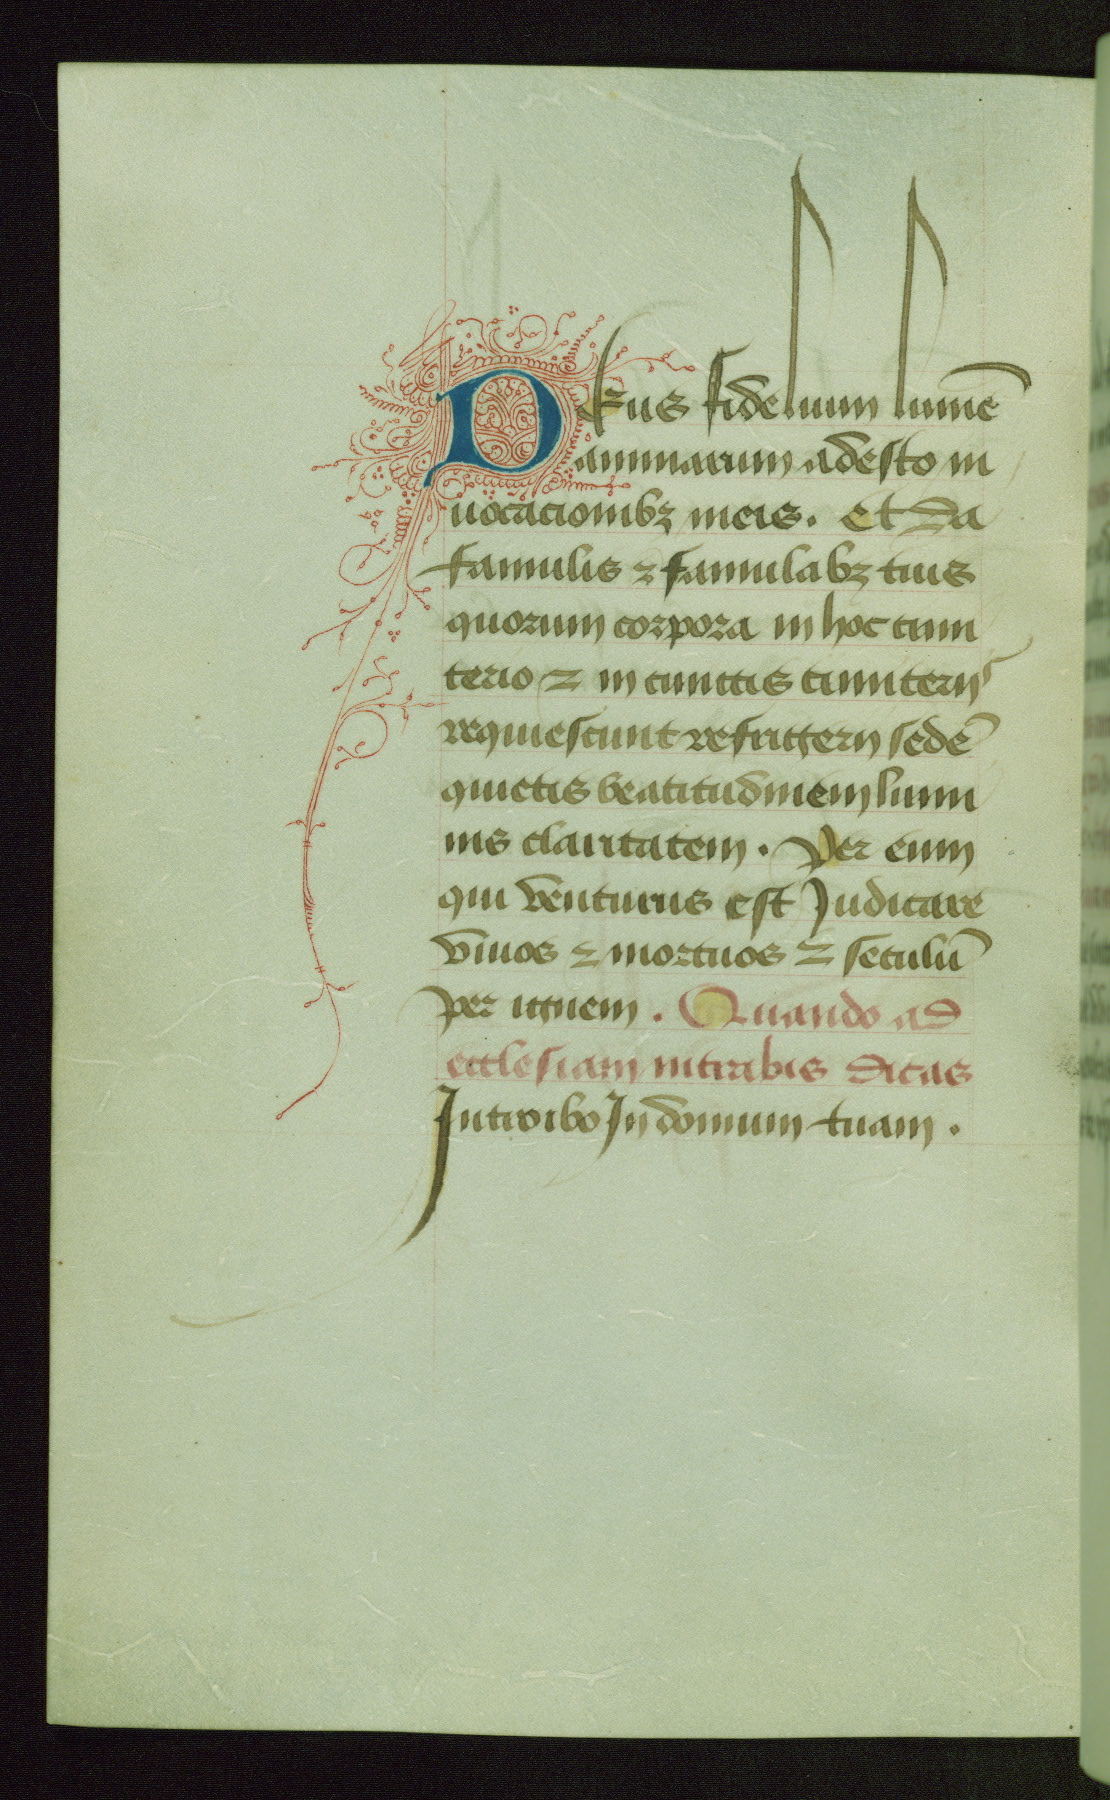 Deus fidelium lumē
animarum adesto in
uocacionibꝫ meis. et da
famulis ⁊ famulabꝫ tuis
quorum corpora in hoc cimi
terio ⁊ in cunctis cimiterijs
requiescunt refrigerij sedē
quietis beatitudinem lumi
nis claritatem. Per eum
qui venturus est Judicare
viuos ⁊ mortuos ⁊ seculū
per ignem. Quando ad
ecclesiam intrabis dicas
Introibo In domum tuam.